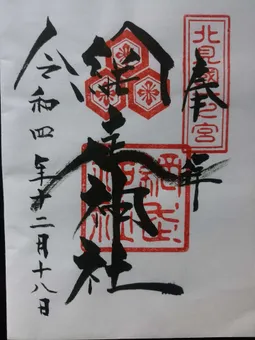 北見國一之宮
奉拝
網走神社
網走神社
令和四年十二月十八日